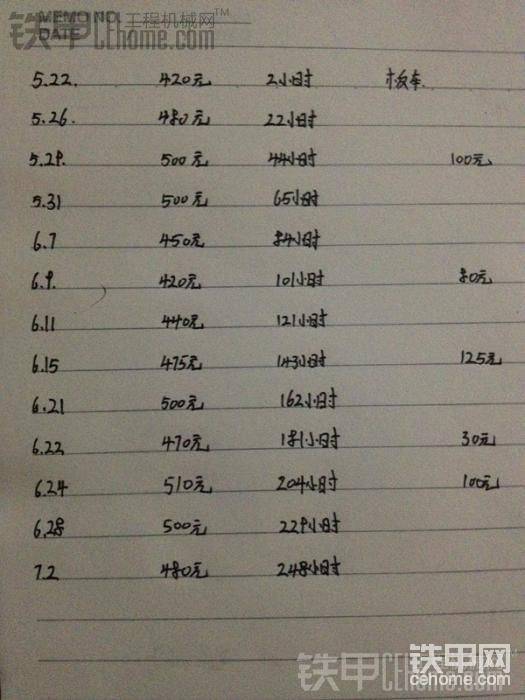 MEMO NO.
DATE
铁甲 工程机械网
cehome.com
5.22. 420元 2小时 板车
5.26. 480元 22小时
5.29. 500元 44小时 100元
5.31 500元 65小时
6.7 450元 84小时
6.9. 420元 101小时 80元
6.11 440元 121小时
6.15 475元 143小时 125元
6.21 500元 162小时
6.22 470元 181小时 30元
6.24 510元 204小时 100元
6.28 500元 229小时
7.2 480元 248小时
铁甲
cehome.com
铁甲网
cehome.com